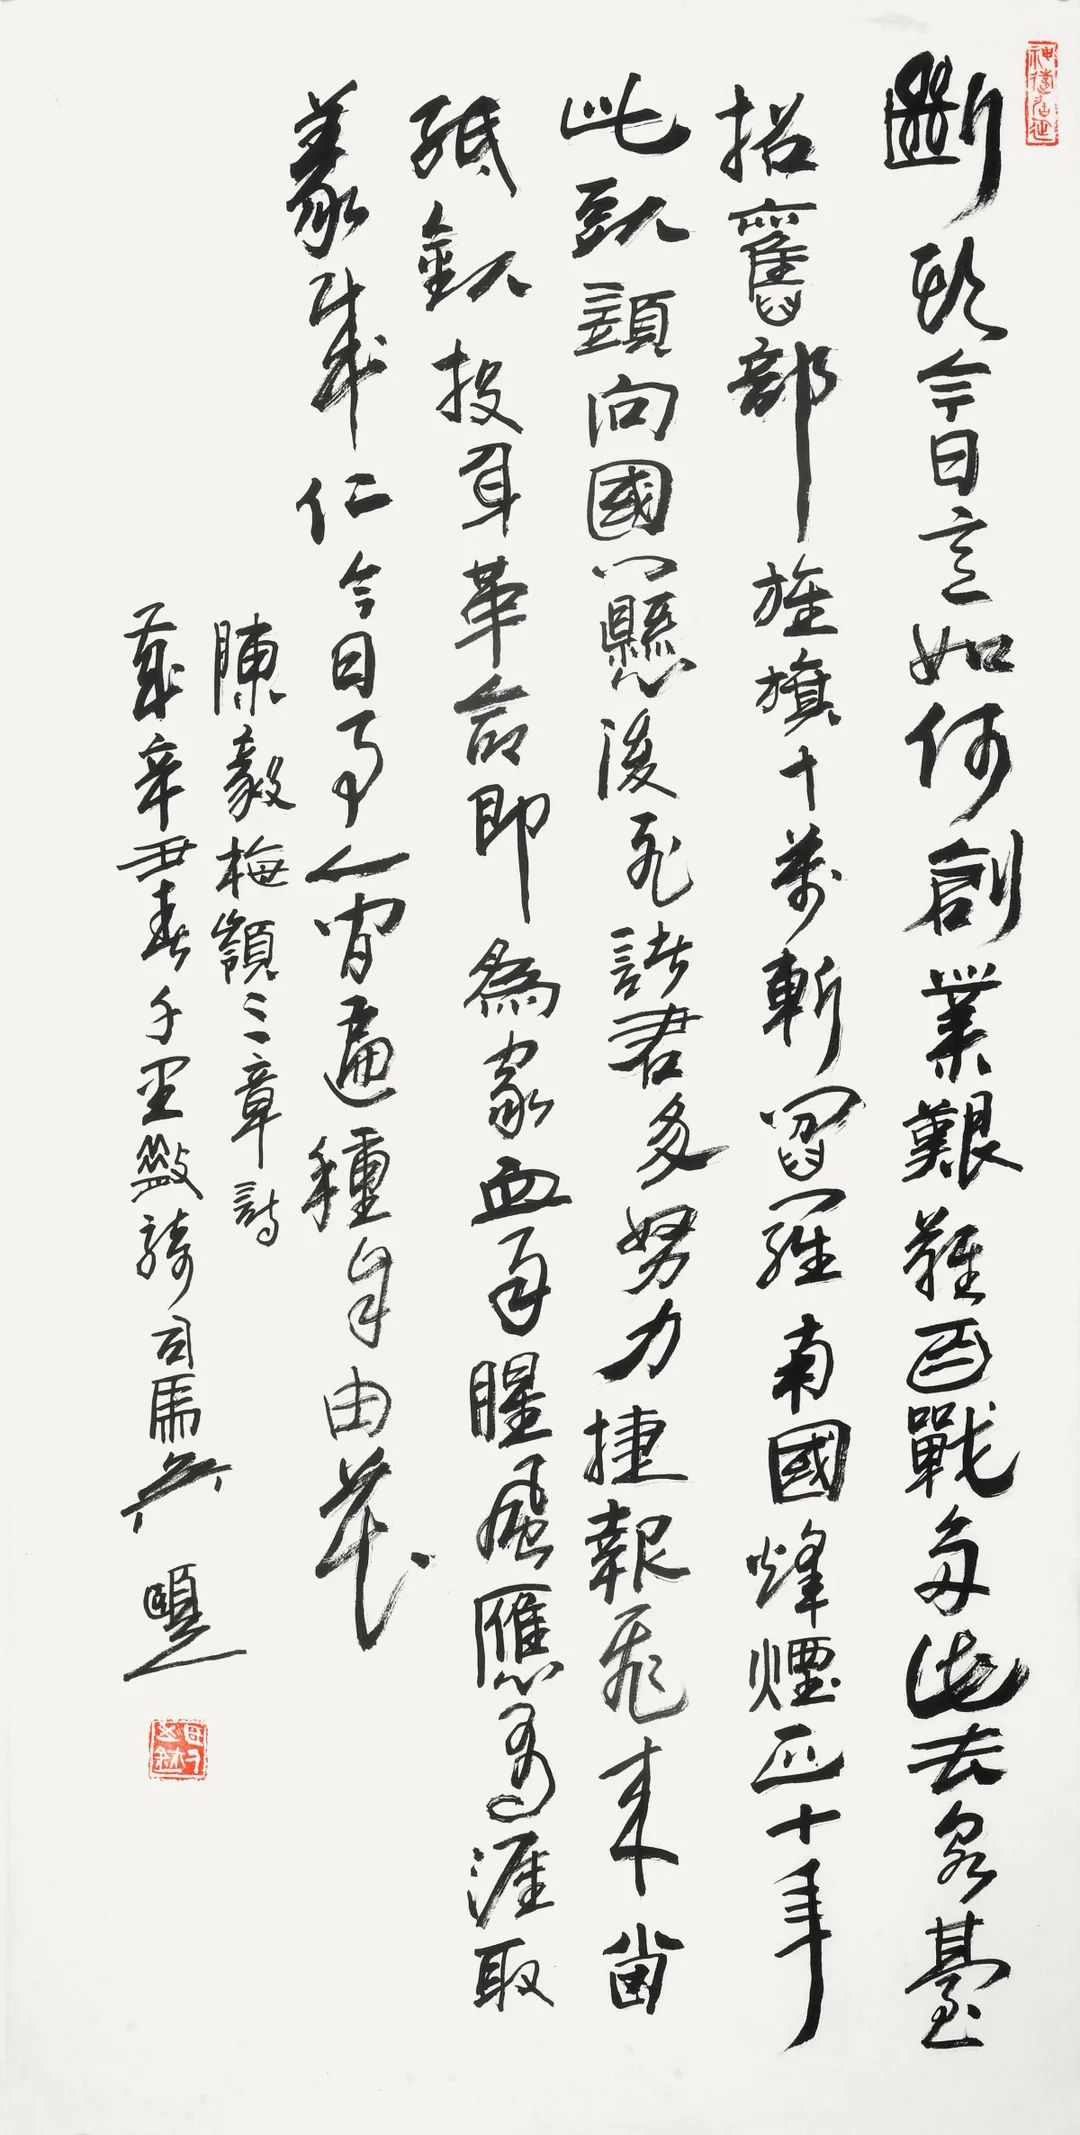 斷頭今日意如何創業艱難百戰多此去泉臺
招舊部旌旗十萬斬閻羅南國烽煙正十年
此頭須向國門懸後死諸君多努力捷報飛來當
紙錢投身革命即為家血雨腥風應有涯取
義成仁今日事人間遍種自由花
陳毅梅嶺三章詩
歲辛丑春千里騎司馬